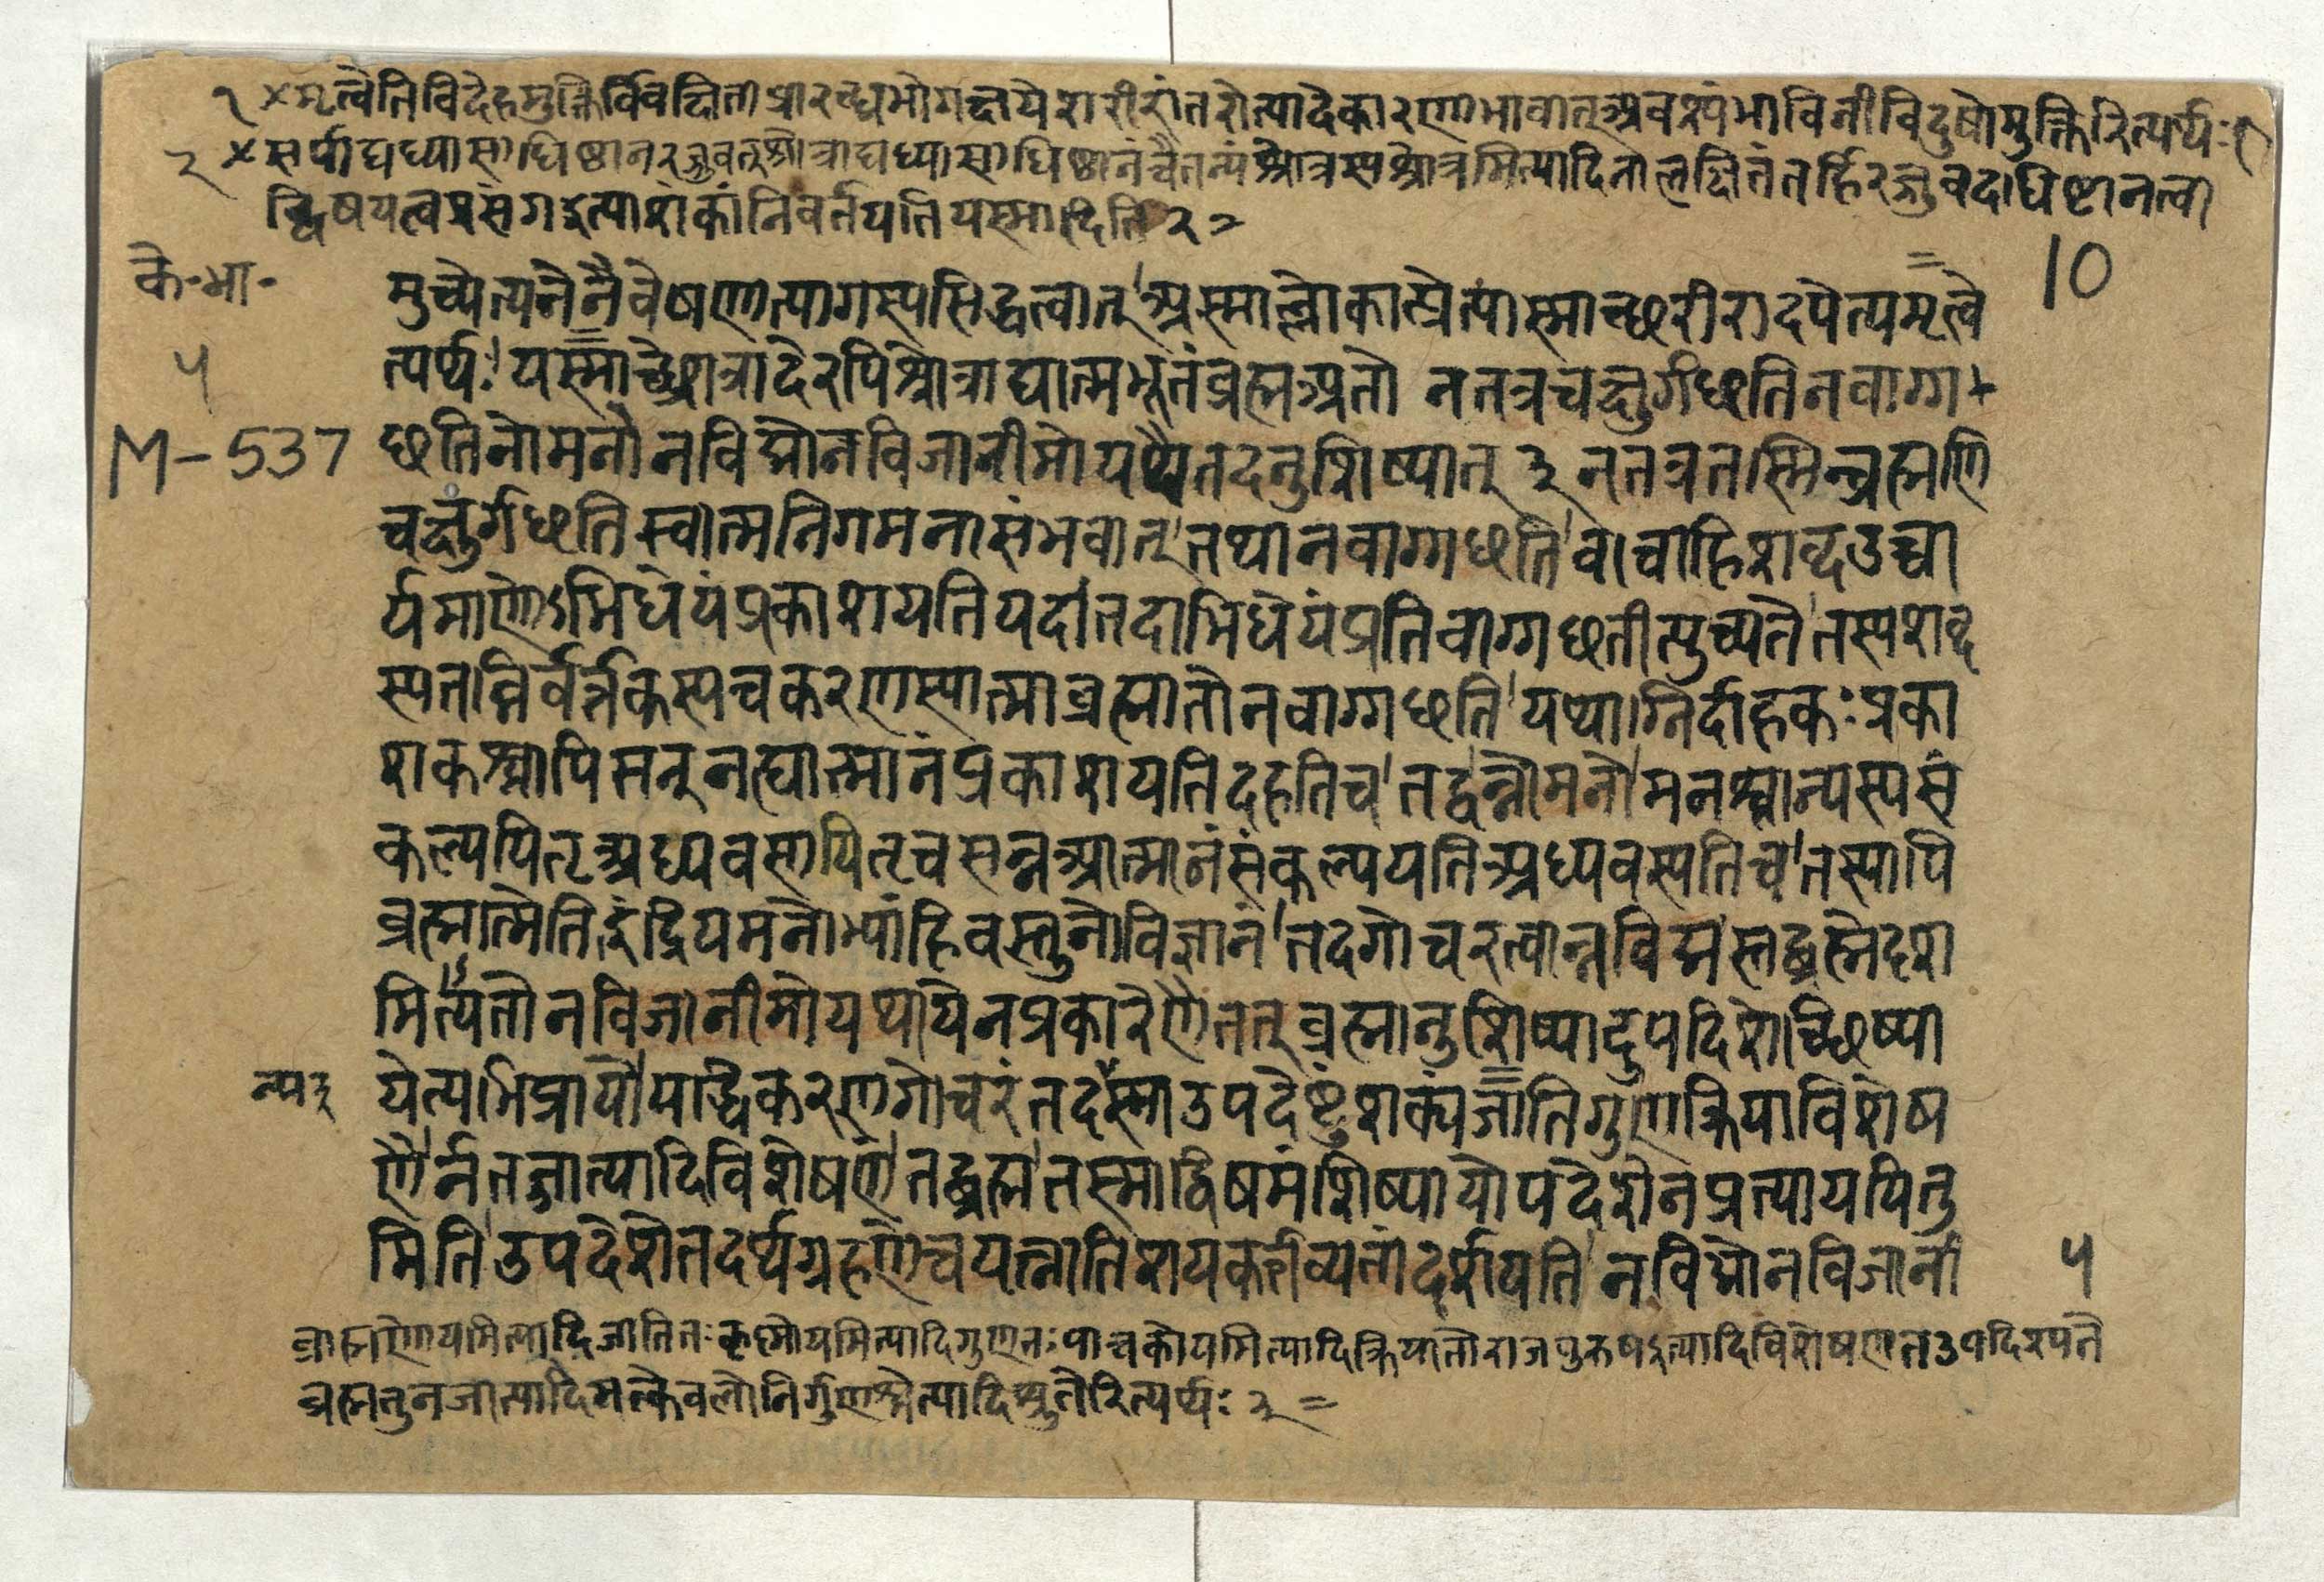 १ ×मृत्वेतिविदेहमुक्तिर्विवक्षिताप्रारब्धभोगक्षयेशरीरांतरोत्पादेकारणाभावात्अवश्यंभाविनीविदुषोमुक्तिरित्यर्थः१
२ ×सर्पाद्यध्यासाधिष्ठानरज्जुवत्श्रोत्राद्यध्यासाधिष्ठानंचैतन्यंश्रोत्रस्यश्रोत्रमित्यादिनालक्षितंतर्हिरज्जुवदधिष्टानत्वा
द्विषयत्वप्रसंगइत्याशंकांनिवर्तयतियस्मादिति२=
के॰भा॰ मुच्येत्यनेनैवेषणात्यागस्यसिद्धत्वात्'अस्माल्लोकात्प्रेत्यास्माच्छरीरादपेत्यमृत्वे 10
५ त्यर्थः'यस्माच्छ्रोत्रादेरपिश्रोत्राद्यात्मभूतंब्रह्मअतो नतत्रचक्षुर्गछतिनवाग्ग
M-537 छतिनोमनोनविद्मोनविजानीमोयथैतदनुशिष्यात् ३ नतत्रतस्मिन्ब्रह्मणि
चक्षुर्गछतिस्वात्मनिगमनासंभवात्'तथानवाग्गछति'वाचाहिशब्दउच्चा
र्यमाणोऽभिधेयंप्रकाशयतियदातदाभिधेयंप्रतिवाग्गछतीत्युच्यते'तस्यशब्द
स्यतन्निर्वर्त्तकस्यचकरणस्यात्माब्रह्मातोनवाग्गछति'यथाग्निर्दाहकःप्रका
शकश्चापिसन्नत्द्यात्मानंप्रकाशयतिदहतिच'तद्वन्नोमनो'मनश्चान्यस्यसं
कल्पयितृअध्यवसायितृचसन्नआत्मानंसंकल्पयतिअध्यवस्यतिच'तस्यापि
ब्रह्मात्मेतिइंद्रियमनोभ्यांहिवस्तुनोविज्ञानं'तदगोचरत्वान्नविद्मस्तद्ब्रह्मेदृश
मित्यतोनविजानीमोयथायेनप्रकारेणैतत्ब्रह्मानुशिष्यादुपदिशेच्छिष्या
न्य३ येत्यभिप्रायोयद्धिकरणगोचरंतदस्माउपदेष्टुंशक्यंजातिगुणक्रियाविशेष
णैर्नतज्जात्यादिविशेषणंतद्ब्रह्म'तस्माद्विषमंशिष्यायोपदेशेनप्रत्याययितु
मिति'उपदेशेतदर्थग्रहणेचयत्नातिशयकर्त्तव्यतांदर्शयति'नविद्मोनविजानी ५
ब्राह्मणोयमित्यादिजातितःकृष्णोयमित्यादिगुणतःपाचकोयमित्यादिक्रियातोराजपुरुषइत्यादिविशेषणतउपदिश्यते
ब्रह्मतुनजात्यादिमत्केवलोनिर्गुणश्चेत्यादिश्रुतेरित्यर्थः ३ =